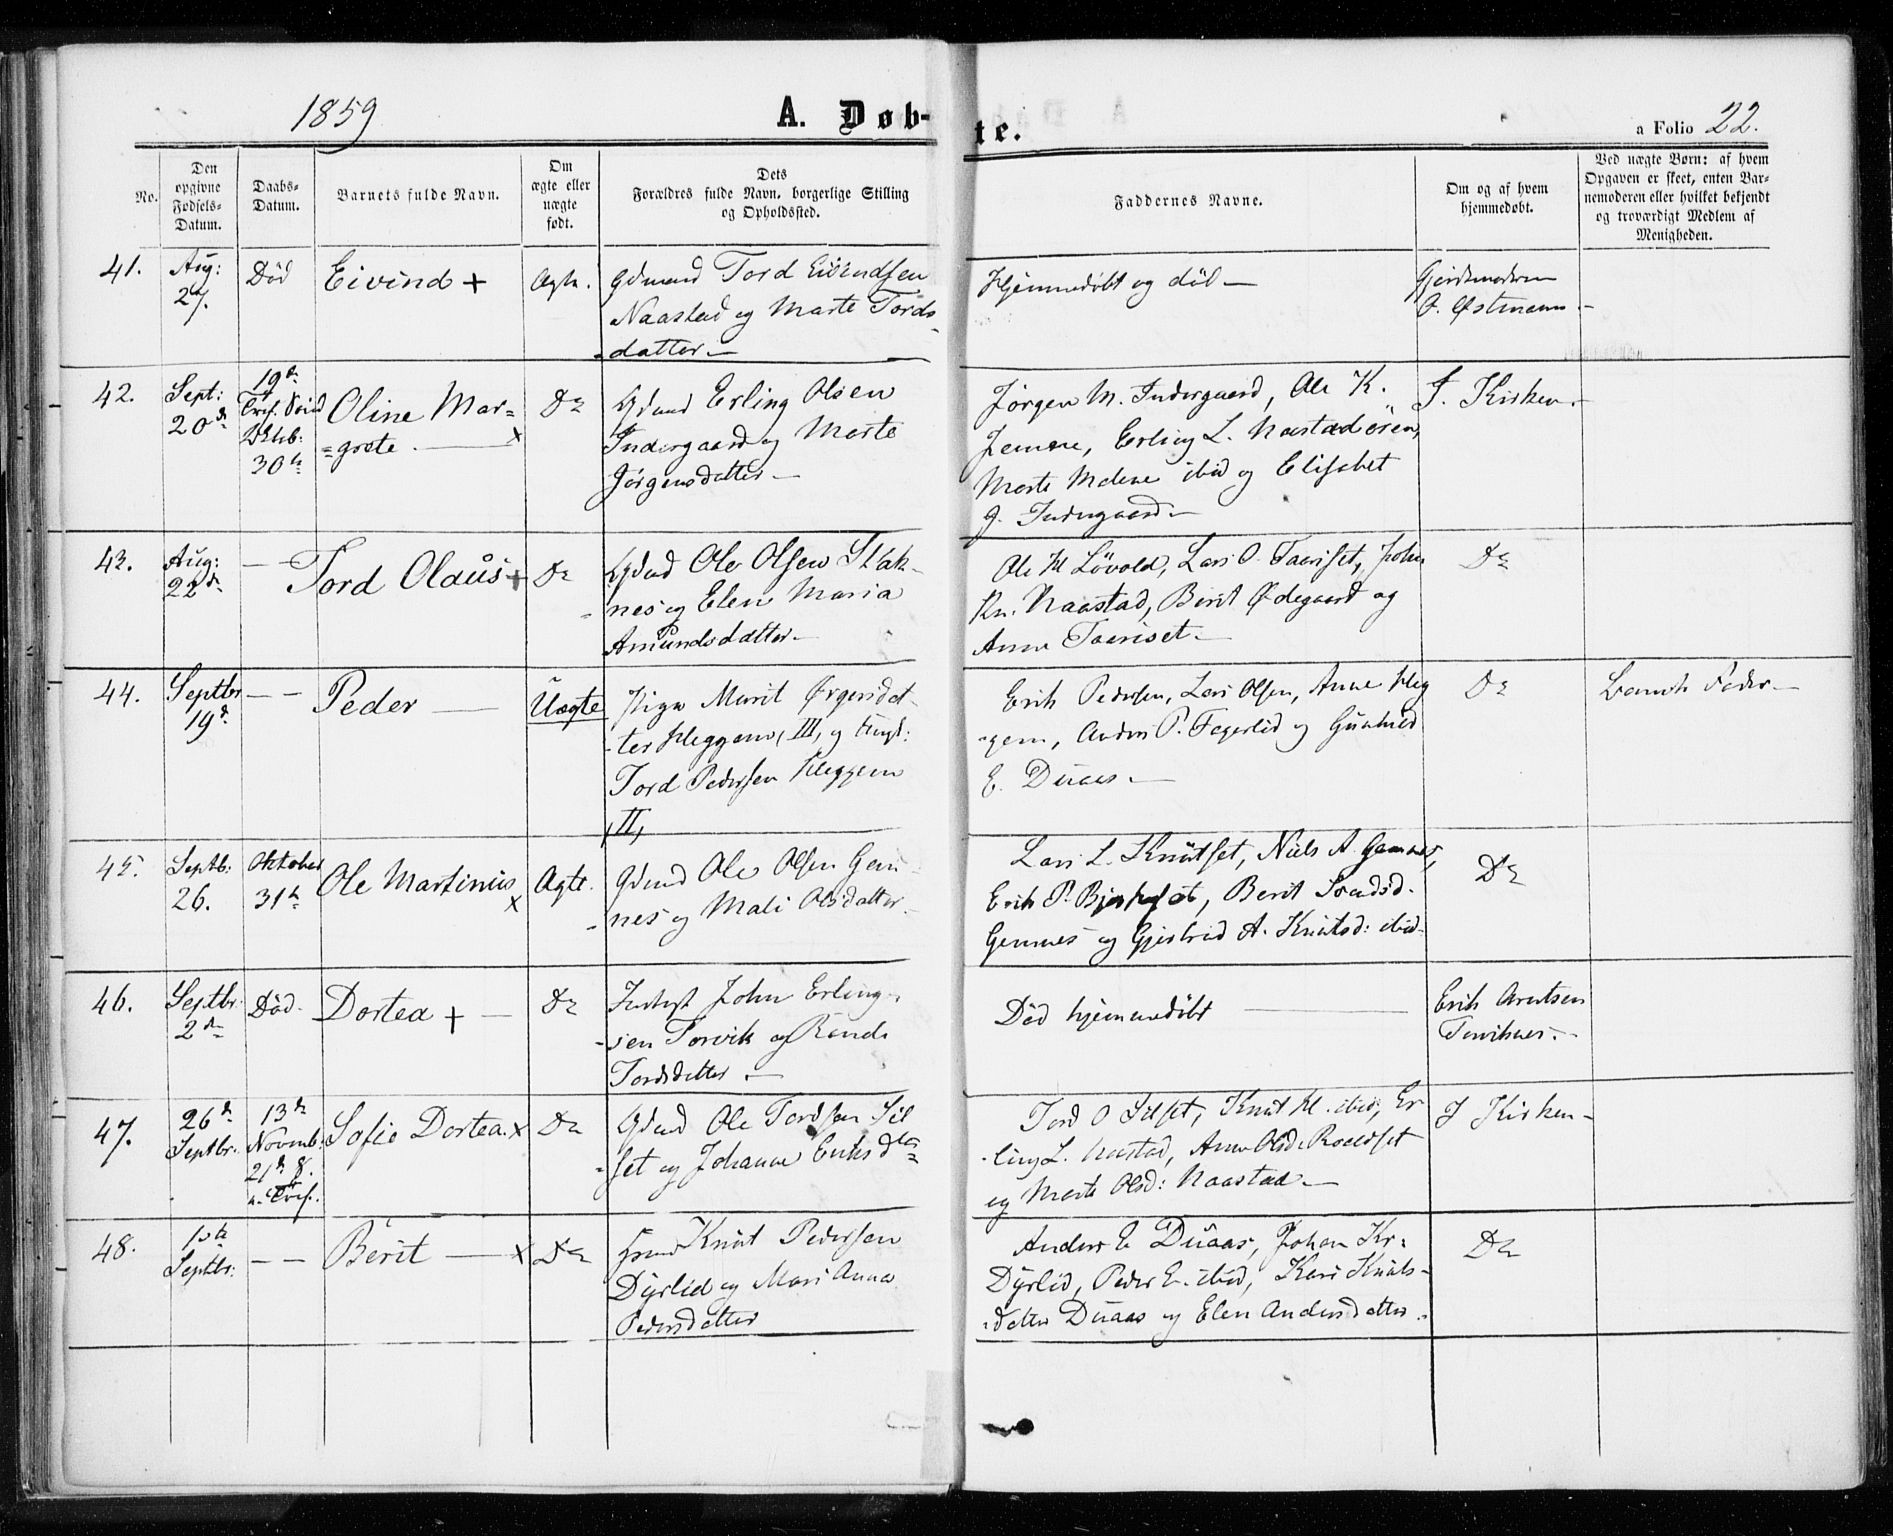 1859
A. Døb-
te.
a Folio 22.
No.
Den
opgivne
Fødsels-
Datum.
Daabs-
Datum.
Barnets fulde Navn.
Om
ægte eller
uægte
født.
Dets
Forældres fulde Navn, borgerlige Stilling
og Opholdssted.
Faddernes Navne.
Om og af hvem
hjemmedøbt.
Ved uægte Børn: af hvem
Opgaven er skeet, enten Bar-
nemoderen eller hvilket bekjendt
og troværdigt Medlem af
Menigheden.
41.
Aug:
27.
Död
Eivind +
Ægte.
Gdmand Tord Eivindsen
Naastad og Marte Tords-
datter —
Hjemmedöbt og död —
Gjordemoderen
Østmann —
42.
Sept:
20d
19d
Dktb:
30te
Oline Mar=
=grete. — x
Do
Gdmd Erling Olsen
Indergaard og Marte
Jörgensdatter —
Jörgen M. Indergaard, Ole K.
Erling L. Naastadören,
Marte Malene ibid og Elisabet
J. Indergaard —
I. Kirken. —
43.
Aug:
22de
—
Tord Olaus +
Do
Gdmd Ole Olsen Stak-
nes og Elen Maria
Amundsdatter —
Ole Kl Lövold, Lars O. Taariset, John
Kn. Naastad, Berit Ødegaard og
Anne Taariset —
Do
44.
Septbr
19d.
— —
Peder —
Uægte
Pige Marit Ørgersdat-
ter Heggem, III, og Ungk:
Tord Pedersen Heggem
II,
Erik Pedersen, Lars Olsen, Anne Heg
-gem, Anders P. Fagerlid og Gunhild
E. Duaas. —
Do
Barnets Fader —
45.
Septb:
26.
Oktober
31te
Ole Martinus x
Ægte.
Gdmd Ole Olsen Gem-
nes og Mali Olsdatter —
Lars L. Knutset, Niels A. Gemnes,
Erik P. Bjerkeset, Berit
Gemnes og Gjertrud A. Knutsd: ibid —
Do
46.
Septbr.
2den
Död.
Dortea + —
Do
Inderst John Erling-
sen Torvik og Randi
Tordsdatter. —
Död hjemmedöbt —
Erik Arntsen
Torviknes. —
47.
26d
Septbr.
13de
Novemb:
21d 8.
Sofie Dortea. x
Do
Gdmd Ole Tordsen Sil
-set og Johanne Eriksdtr
Tord O Silset, Knut Kl. ibid, Er
-ling L. Naastad, Anne Olsd: Roaldset
og Marte Olsd: Naastad —
I Kirken —
48.
10de
Septbr:
— —
Berit — x
Do
Knut Pedersen
Dyrlid og Mari Anna
Pedersdatter
Anders E Duaas, Johan Kr.
Dyrlid, Peder E. ibid, Kari Knuts-
-datter Duaas og Elen Andersdatter. —
Do